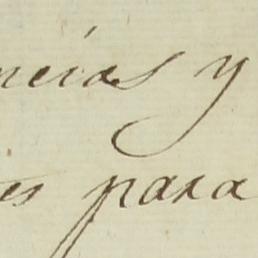 ncias y
es para